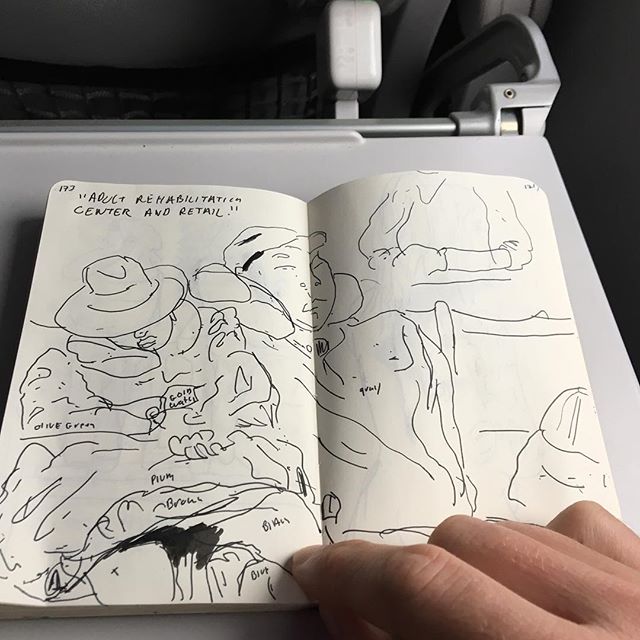 173
"ADULT REHABILITATION
CENTER AND RETAIL."
GOLD
WATCH
OLIVE GREEN
gray
PLUM
Brown
Black
BLUE